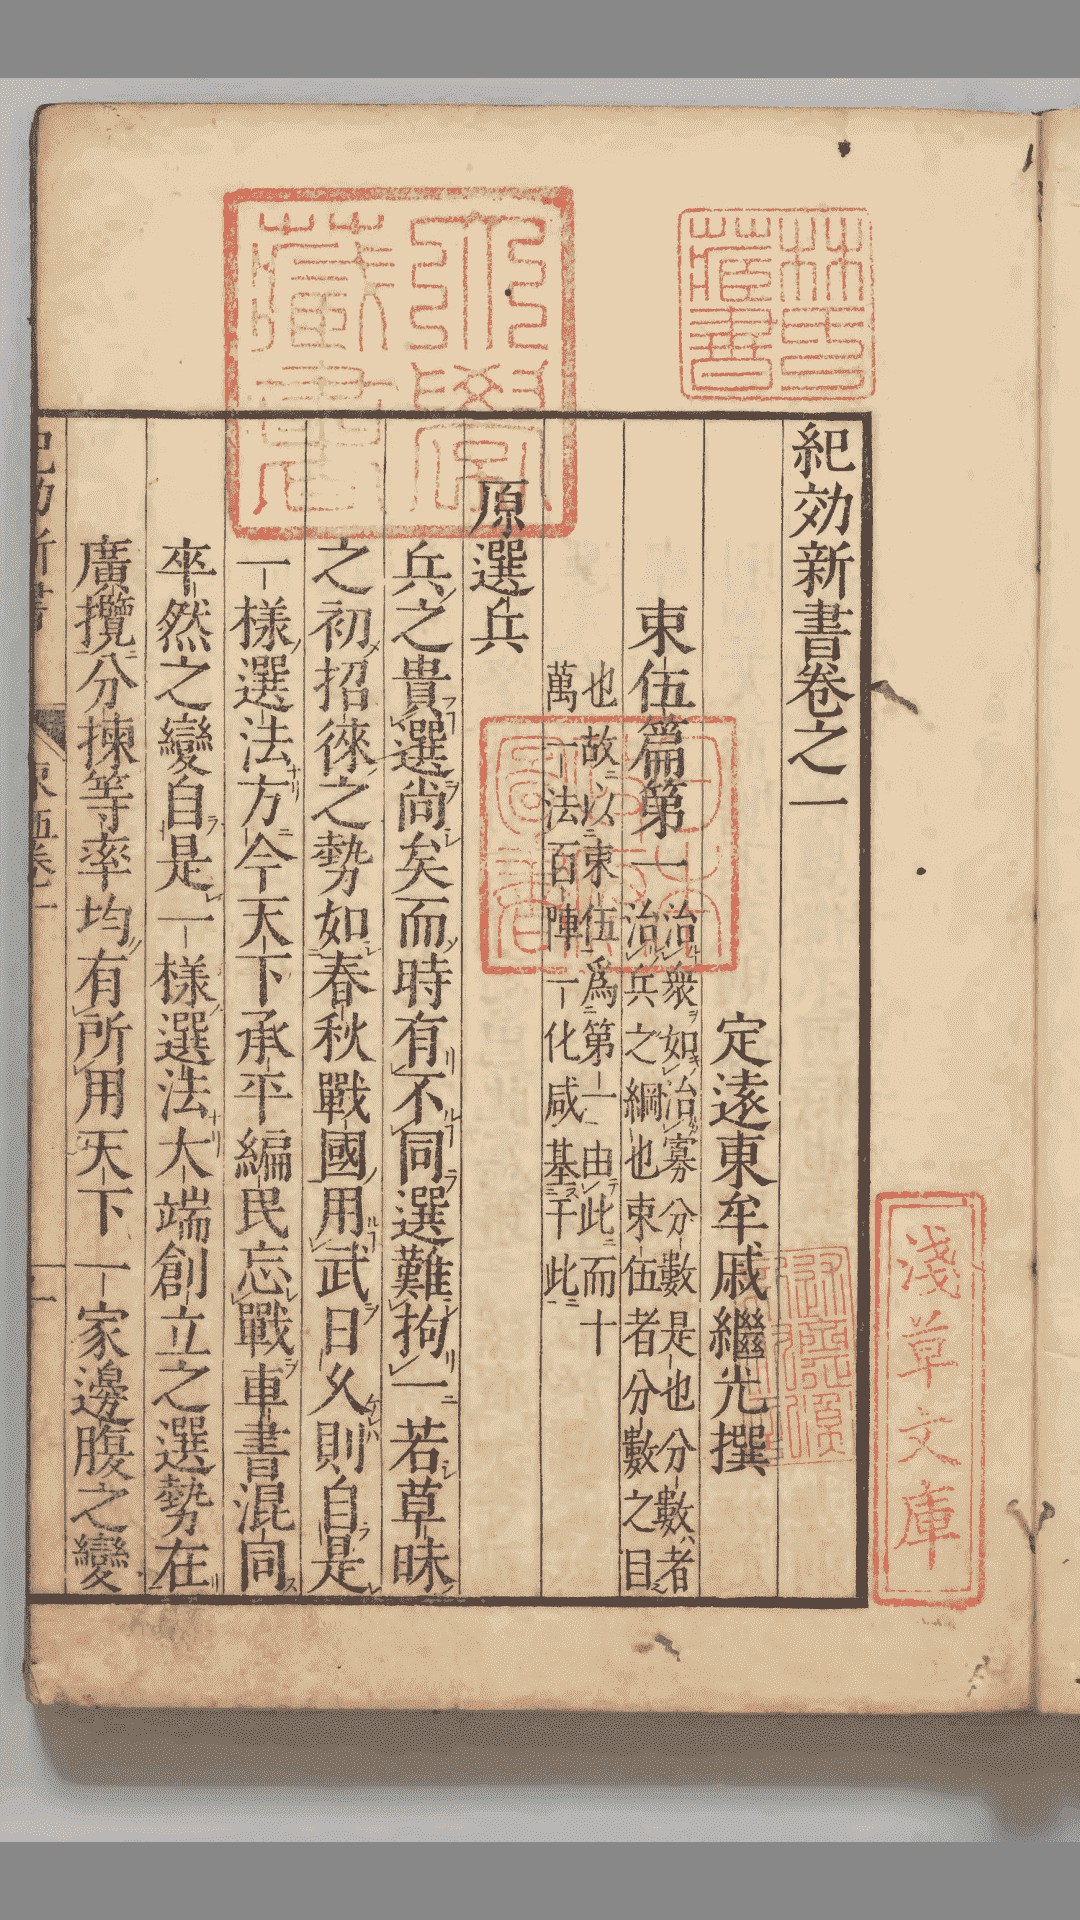 林氏藏書
大學藏書
紀効新書卷之一
定遠東牟戚繼光撰
束伍篇第一
治衆如治寡分數是也分數者
治兵之綱也束伍者分數之目
也故以束伍爲第一由此而十
萬一法百陣一化咸基于此
原選兵
兵之貴選尚矣而時有不同選難拘一若草昧
之初招徠之勢如春秋戰國用武日久則自是
一樣選法方今天下承平編民忘戰車書混同
卒然之變自是一樣選法大端創立之選勢在
廣攬分揀等率均有所用天下一家邊腹之變
淺草文庫
日本政府圖書